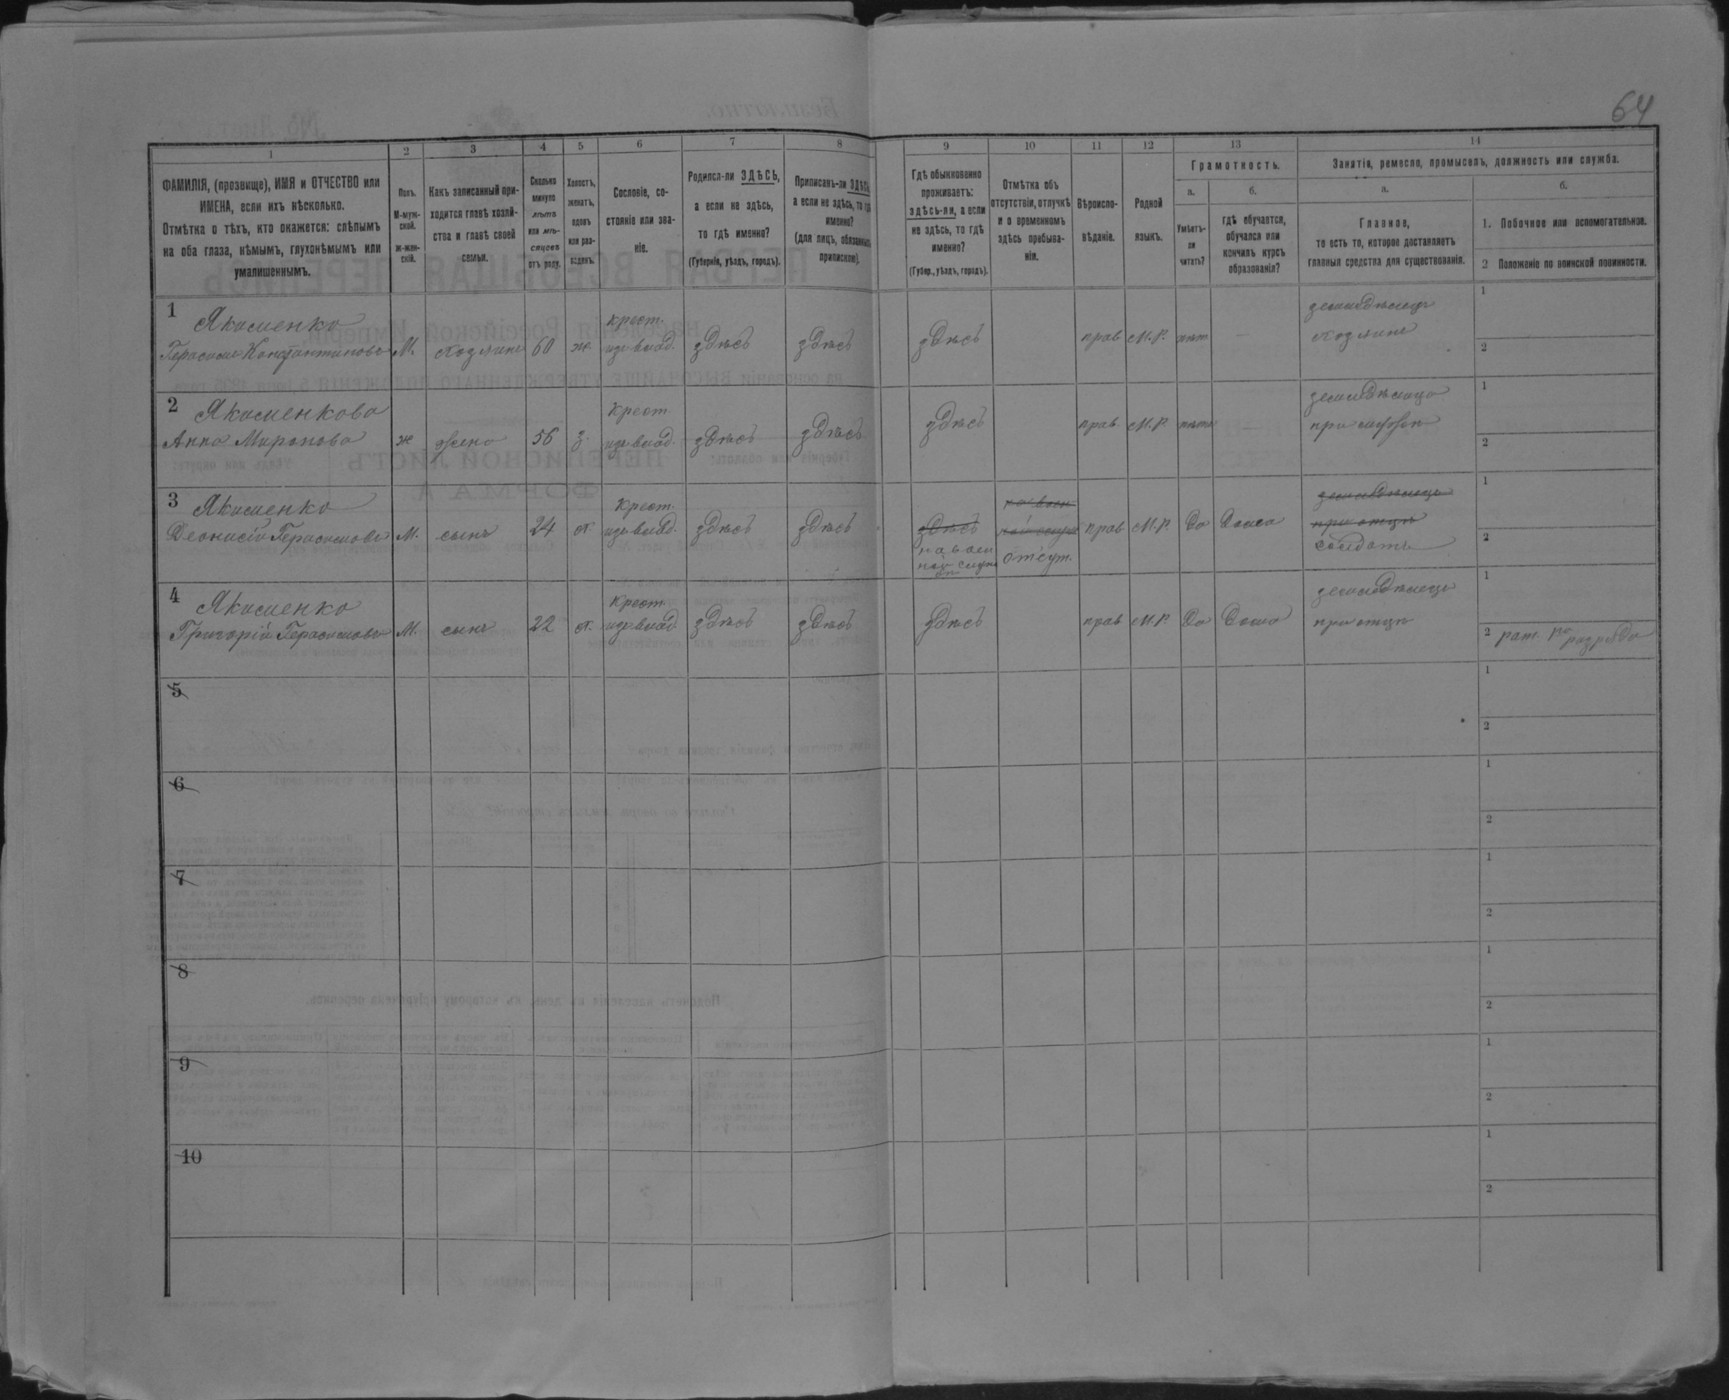 64
1
2
3
4
5
6
7
8
9
10
11
12
13
14
ФАМИЛІЯ, (прозвище), ИМЯ и ОТЧЕСТВО или
ИМЕНА, если ихъ нѣсколько.
Отмѣтка о тѣхъ, кто окажется: слѣпымъ
на оба глаза, нѣмымъ, глухонѣмымъ или
умалишеннымъ.
Полъ.
М-муж-
ской.
ж-жен-
скій.
Какъ записанный при-
ходится главѣ хозяй-
ства и главѣ своей
семьи.
Сколько
минуло
лѣтъ
или мѣ-
сяцевъ
отъ роду.
Холостъ,
женатъ,
вдовъ
или раз-
веденъ.
Сословіе, со-
стояніе или зва-
ніе.
Родился-ли ЗДѢСЬ,
а если не здѣсь,
то гдѣ именно?
(Губернія, уѣздъ, городъ).
Приписанъ-ли ЗДѢСЬ,
а если не здѣсь, то гдѣ
именно?
(для лицъ, обязанныхъ
припискою).
Гдѣ обыкновенно
проживаетъ:
здѣсь-ли, а если
не здѣсь, то гдѣ
именно?
(Губер., уѣздъ, городъ).
Отмѣтка объ
отсутствіи, отлучкѣ
и о временномъ
здѣсь пребыва-
ніи.
Вѣроиспо-
вѣданіе.
Родной
языкъ.
Грамотность.
а.
б.
Умѣетъ-
ли
читать?
гдѣ обучается,
обучался или
кончилъ курсъ
образованія?
Занятія, ремесло, промыселъ, должность или служба.
а.
б.
Главное,
то есть то, которое доставляетъ
главныя средства для существованія.
1. Побочное или вспомогательное.
2 Положеніе по воинской повинности.
1 Якименко крест. земледѣлецъ 1
Герасимъ Константиновъ М. хозяинъ 60 ж. изъ влад. здѣсь здѣсь здѣсь прав М.Р. нѣт — хозяинъ 2
2 Якименкова Крест. земледѣлица 1
Анна Миронова ж жена 56 з. изъ влад. здѣсь здѣсь здѣсь прав. М.Р. нѣт при мужѣ 2
3 Якименко Крест. на воен земледѣлецъ 1
Деонисій Герасимовъ М. сынъ 24 х. изъ влад. здѣсь здѣсь здѣсь прав М.Р. да дома при отцѣ 2
на воен отсут. солдатъ
ной служ
4 Якименко Крест. земледѣлецъ 1
Григорій Герасимовъ М. сынъ 22 х. изъ влад здѣсь здѣсь здѣсь прав М.Р. да дома при отцѣ 2 рат. разряда
5 1
2
6 1
2
7 1
2
8 1
2
9 1
2
10 1
2